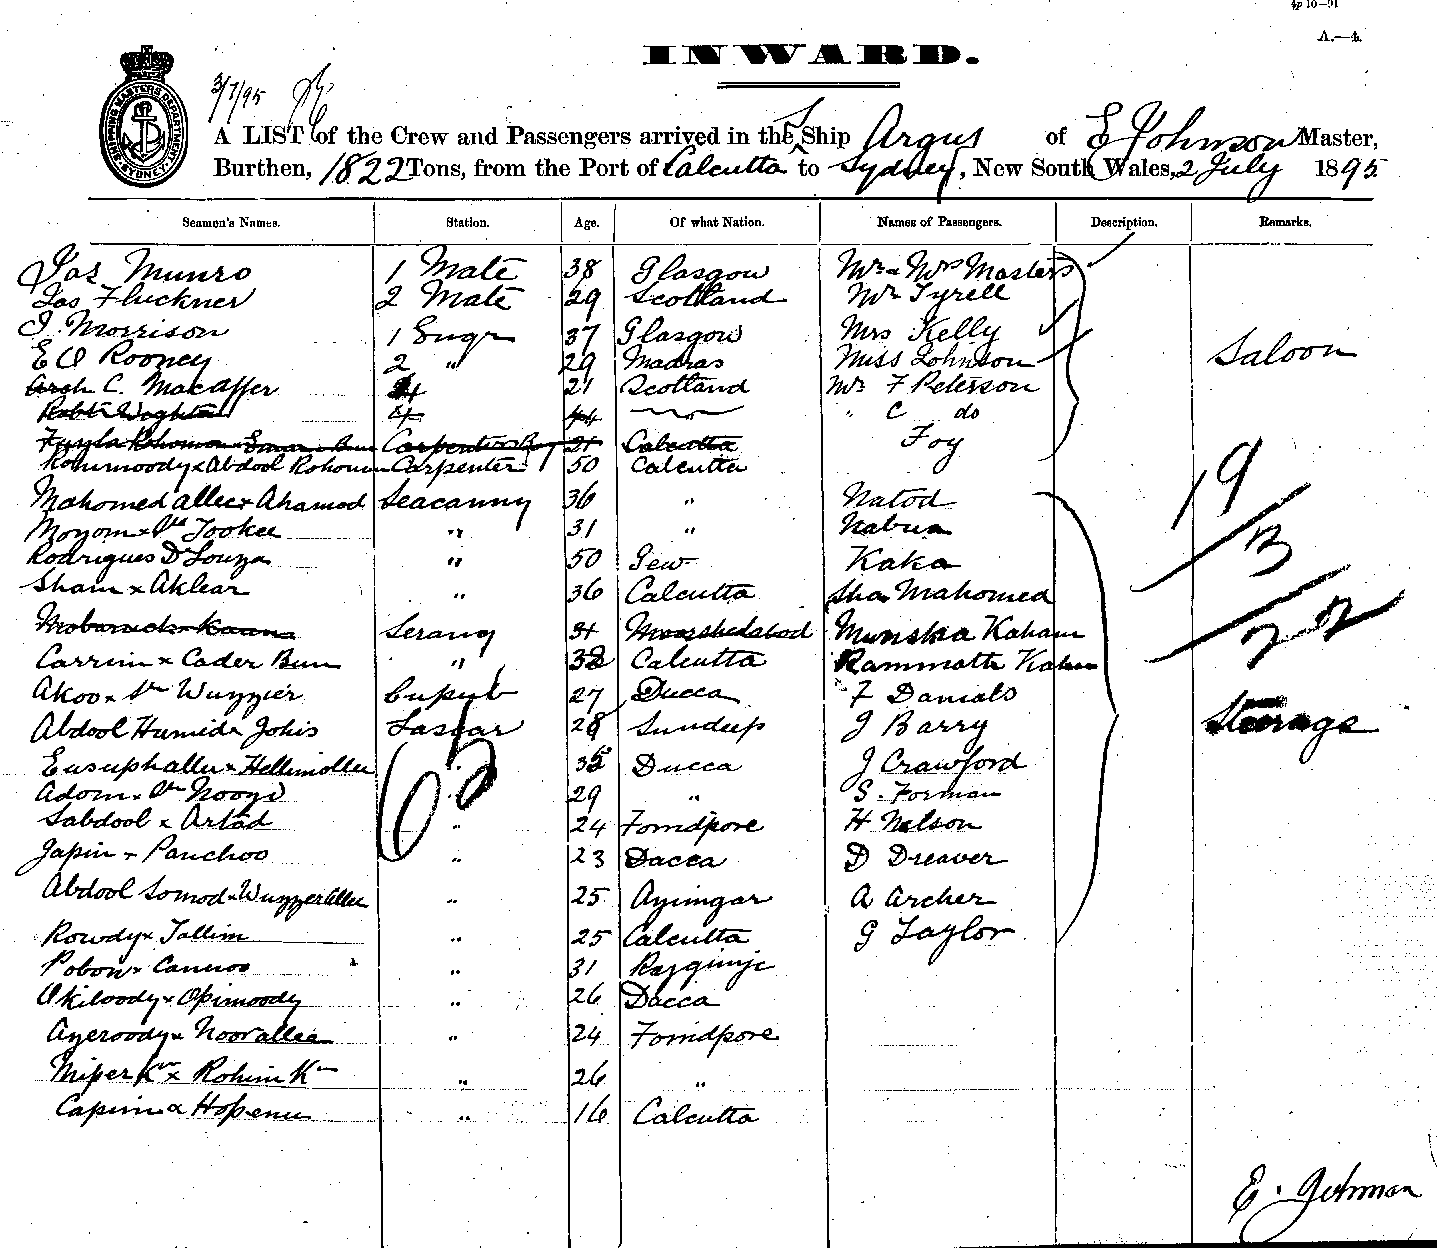 4p 10—91
A.—4.
INWARD.
SHIPPING MASTERS DEPARTMENT SYDNEY
3/7/95
A LIST of the Crew and Passengers arrived in the S Ship Argus of E Johnson Master,
Burthen, 1822 Tons, from the Port of Calcutta to Sydney, New South Wales, 2 July 1895
Seamen's Names. Station. Age. Of what Nation. Names of Passengers. Description. Remarks.
Jas Munro 1 Mate 38 Glasgow Mr & Mrs Masters
Jas Fluckner 2 Mate 29 Scotland Mr Tyrell
J. Morrison 1 Engr 37 Glasgow Mrs Kelly
E O Rooney 2 " 29 Madras Miss Johnson Saloon
Arch C. Macaffer 4 21 Scotland Mr F Peterson
4 44 " C do
Carpenters Boy 21 Calcutta Foy
Kommoody x Abdool Rohoman Carpenter 50 Calcutta
Mahomed allee x Ahamod Seacunny 36 " Natod
Moyom x Tookee " 31 " Nabun
Rodrigues D'Souza " 50 Kaka
Sham x Aklear " 36 Calcutta Sha Mahomed
Mobaruck x Serang 31 Moorshedabad Munsha Kaham
Carrim x Cader Bux " 32 Calcutta Rammatte Kahan
Akoo x Wuzzier 27 Dacca F Danials
Abdool Humid x Johis Lascar 28 Sundeep J Barry Steerage
Eusuphallee x 35 Ducca J Crawford
Adom x " 29 " S. Forman
Sabdool x Artad " 24 Foridpore H Nelson
Japin x Panchoo " 23 Dacca D Dreaver
Abdool Somod x Wuzzer Allee " 25 Ayimgar A Archer
Rowdy x Tallim " 25 Calcutta G Taylor
Pobon x " 31
Okiloody x Opimoody " 26 Dacca
Ayeroody x Noorallee " 24 Foridpore
x Rohim Kn " 26 "
Capim x " 16 Calcutta
19
13
22
65
E. Johnson